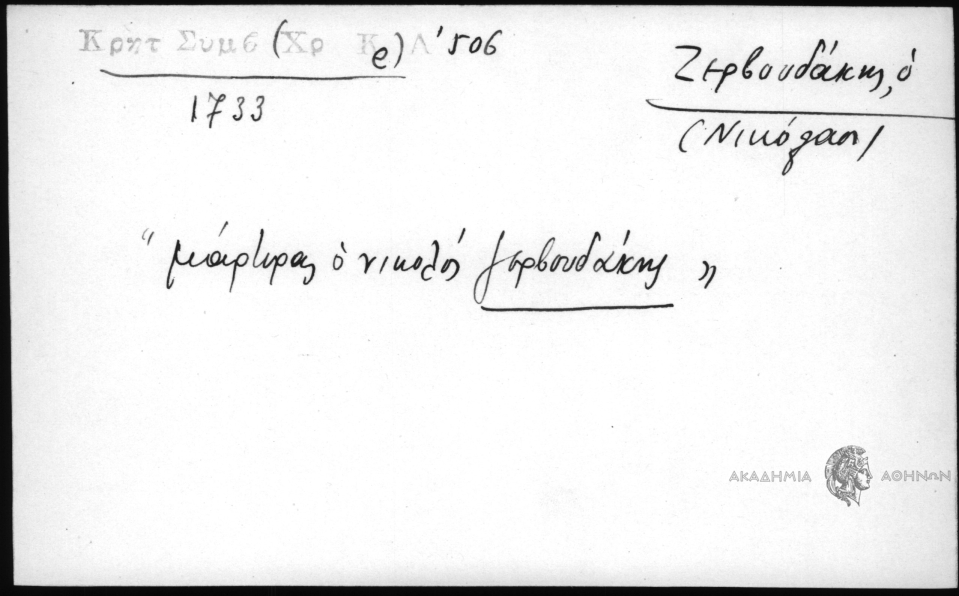 Κρητ Συμβ (Χρ Κ ρ) Λ' 506
1733
Ζερβουδάκης, ὁ
(Νικόλαος)
“ μάρτυρας ὁ νικολός ζερβουδάκης „
ΑΚΑΔΗΜΙΑ ΑΘΗΝΩΝ